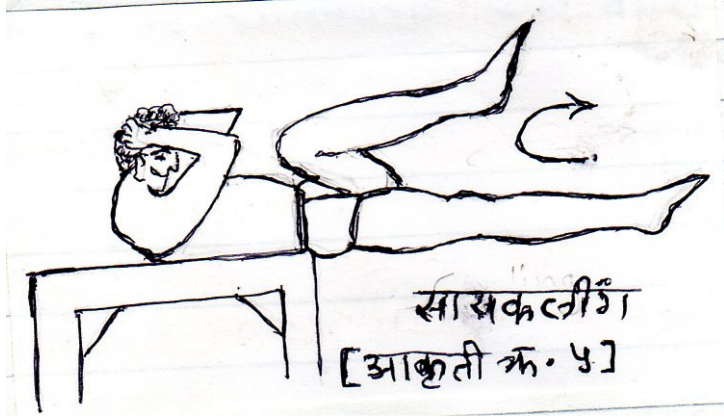 सायकलींग
[आकृती क्र. ५]